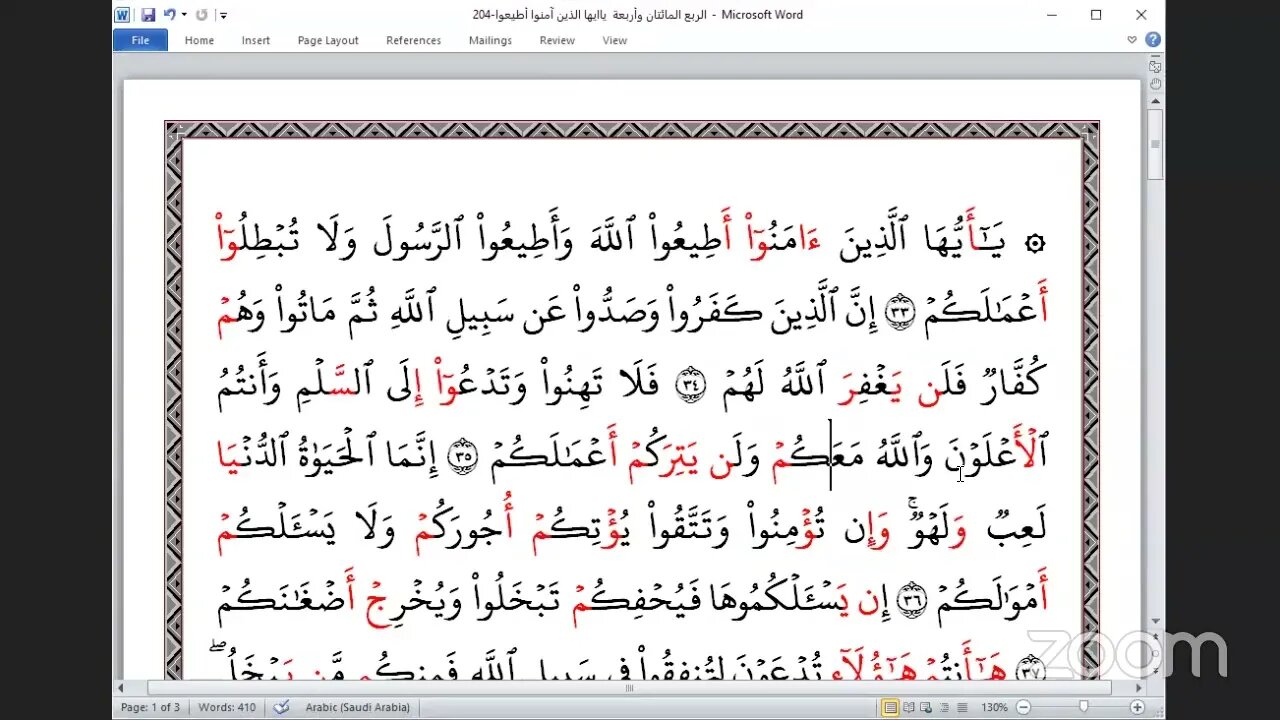 الربع المائتان وأربعة ياايها الذين آمنوا أطيعوا-204 - Microsoft Word
File Home Insert Page Layout References Mailings Review View
۞ يَـٰٓأَيُّهَا ٱلَّذِينَ ءَامَنُوٓا۟ أَطِيعُوا۟ ٱللَّهَ وَأَطِيعُوا۟ ٱلرَّسُولَ وَلَا تُبْطِلُوٓا۟
أَعْمَـٰلَكُمْ ٣٣ إِنَّ ٱلَّذِينَ كَفَرُوا۟ وَصَدُّوا۟ عَن سَبِيلِ ٱللَّهِ ثُمَّ مَاتُوا۟ وَهُمْ
كُفَّارٌ فَلَن يَغْفِرَ ٱللَّهُ لَهُمْ ٣٤ فَلَا تَهِنُوا۟ وَتَدْعُوٓا۟ إِلَى ٱلسَّلْمِ وَأَنتُمُ
ٱلْأَعْلَوْنَ وَٱللَّهُ مَعَكُمْ وَلَن يَتِرَكُمْ أَعْمَـٰلَكُمْ ٣٥ إِنَّمَا ٱلْحَيَوٰةُ ٱلدُّنْيَا
لَعِبٌ وَلَهْوٌ ۚ وَإِن تُؤْمِنُوا۟ وَتَتَّقُوا۟ يُؤْتِكُمْ أُجُورَكُمْ وَلَا يَسْـَٔلْكُمْ
أَمْوَٰلَكُمْ ٣٦ إِن يَسْـَٔلْكُمُوهَا فَيُحْفِكُمْ تَبْخَلُوا۟ وَيُخْرِجْ أَضْغَـٰنَكُمْ
٣٧ هَـٰٓأَنتُمْ هَـٰٓؤُلَآءِ تُدْعَوْنَ لِتُنفِقُوا۟ فِى سَبِيلِ ٱللَّهِ فَمِنكُم مَّن يَبْخَلُ ۖ
zoom
Page: 1 of 3 Words: 410 Arabic (Saudi Arabia) 130%